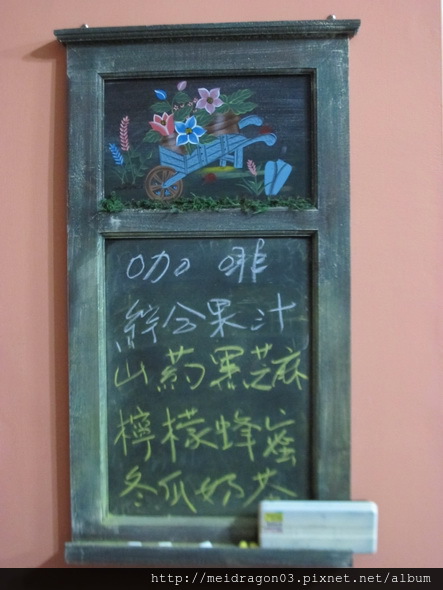 咖啡
綜合果汁
山药黑芝麻
檸檬蜂蜜
冬瓜奶茶
http://meidragon03.pixnet.net/album